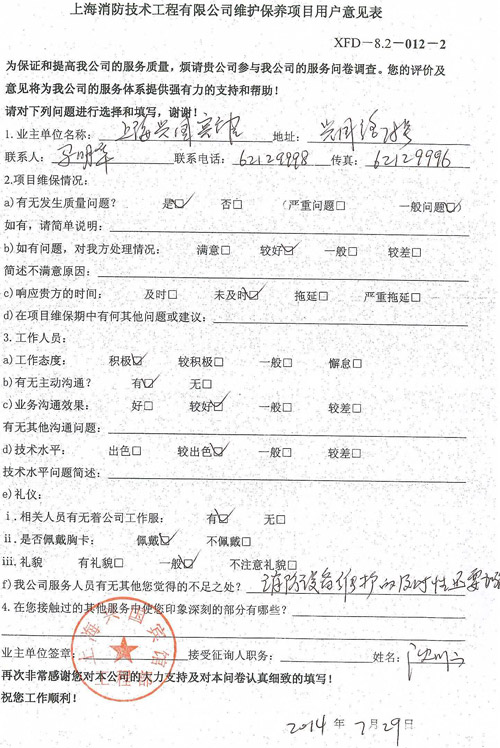 上海消防技术工程有限公司维护保养项目用户意见表
XFD－8.2－012－2
为保证和提高我公司的服务质量，烦请贵公司参与我公司的服务问卷调查。您的评价及
意见将为我公司的服务体系提供强有力的支持和帮助！
请对下列问题进行选择和填写，谢谢！
1.业主单位名称：上海兴国宾馆 地址：兴国路78号
联系人： 联系电话：62129998 传真：62129996
2.项目维保情况：
a)有无发生质量问题？ 是☑ 否□ （严重问题□ 一般问题☑）
如有，请简单说明：
b)如有问题，对我方处理情况： 满意□ 较好☑ 一般□ 较差□
简述不满意原因：
c)响应贵方的时间： 及时□ 未及时☑ 拖延□ 严重拖延□
d)在项目维保期中有何其他问题或建议：
3.工作人员：
a)工作态度： 积极☑ 较积极□ 一般□ 懈怠□
b)有无主动沟通？ 有☑ 无□
c)业务沟通效果： 好□ 较好☑ 一般□ 较差□
有无其他沟通问题：
d)技术水平： 出色□ 较出色☑ 一般□ 较差□
技术水平问题简述：
e)礼仪：
i.相关人员有无着公司工作服： 有☑ 无□
ii.是否佩戴胸卡： 佩戴☑ 不佩戴□
iii.礼貌 有礼貌□ 一般☑ 不注意礼貌□
f)我公司服务人员有无其他您觉得的不足之处？ 消防设备维护的及时性还要加强
4.在您接触过的其他服务中使您印象深刻的部分有哪些？
业主单位签章： 接受征询人职务： 姓名：
上海兴国宾馆
工程部
再次非常感谢您对本公司的大力支持及对本问卷认真细致的填写！
祝您工作顺利！
2014年7月29日